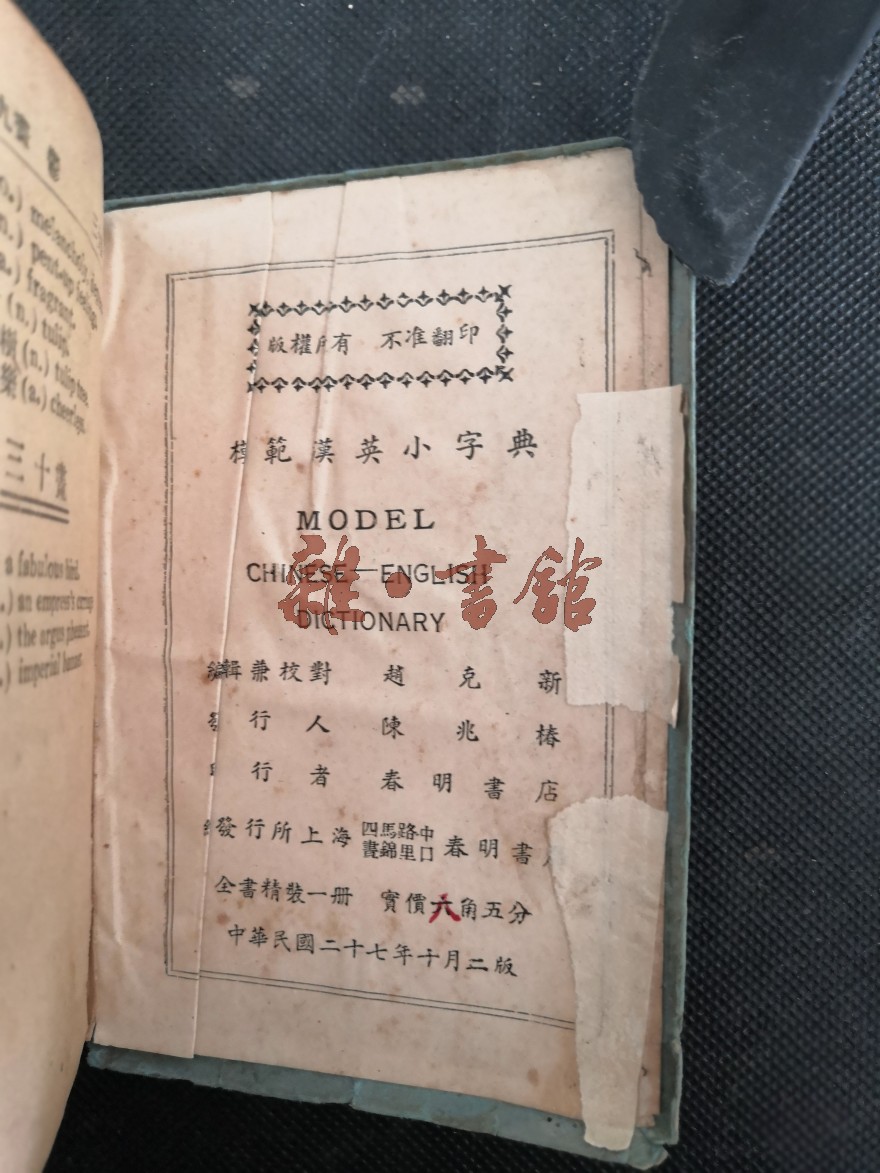 (n.) pent-up feelings.
fragrant.
(n.) tulip.
橫 (n.) tulip tree.
樂 (a.) cheerless.
三十畫
a fabulous bird.
.) an empress's carriage
.) the argus pheasant.
.) imperial banner
版權所有 不准翻印
模範漢英小字典
MODEL
CHINESE—ENGLISH
DICTIONARY
編輯兼校對 趙克新
發行人 陳兆椿
印行者 春明書店
總發行所上海四馬路中畫錦里口春明書店
全書精裝一册 實價六角五分
中華民國二十七年十月二版
雜·書館